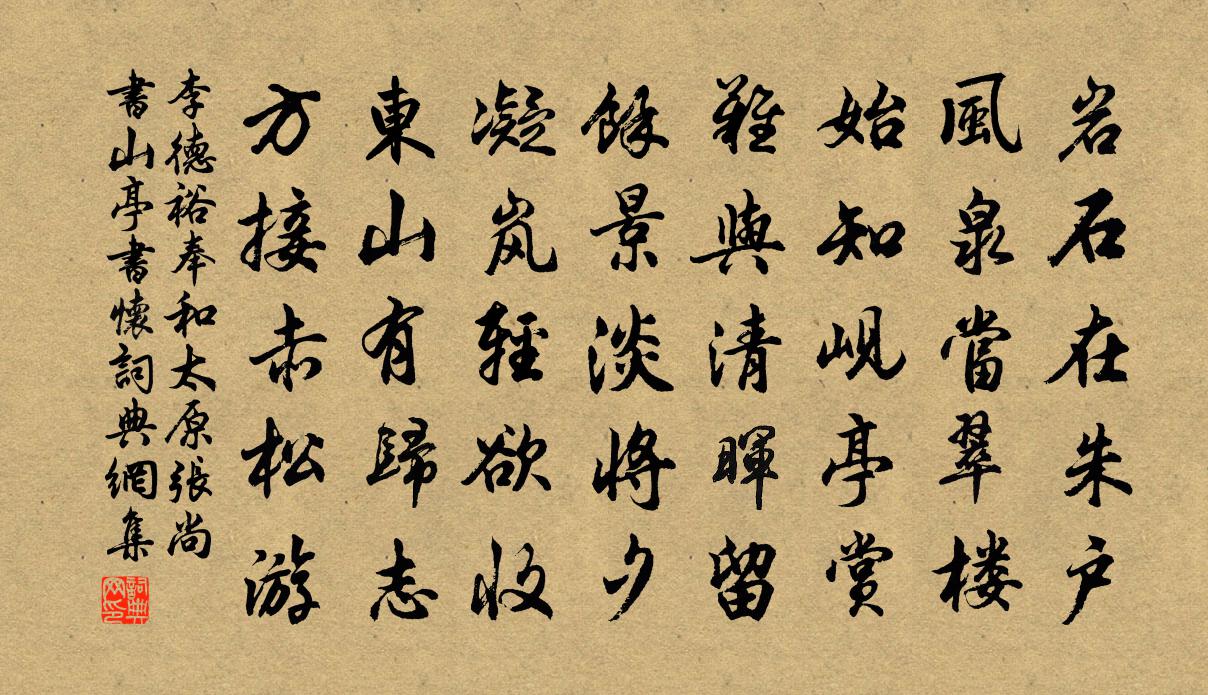 岩石在朱户
風泉當翠楼
始知峴亭賞
難與清暉留
餘景淡將夕
凝岚輕欲收
東山有歸志
方接赤松游
李德裕奉和太原張尚
書山亭書懷詞典網集
詞典网印